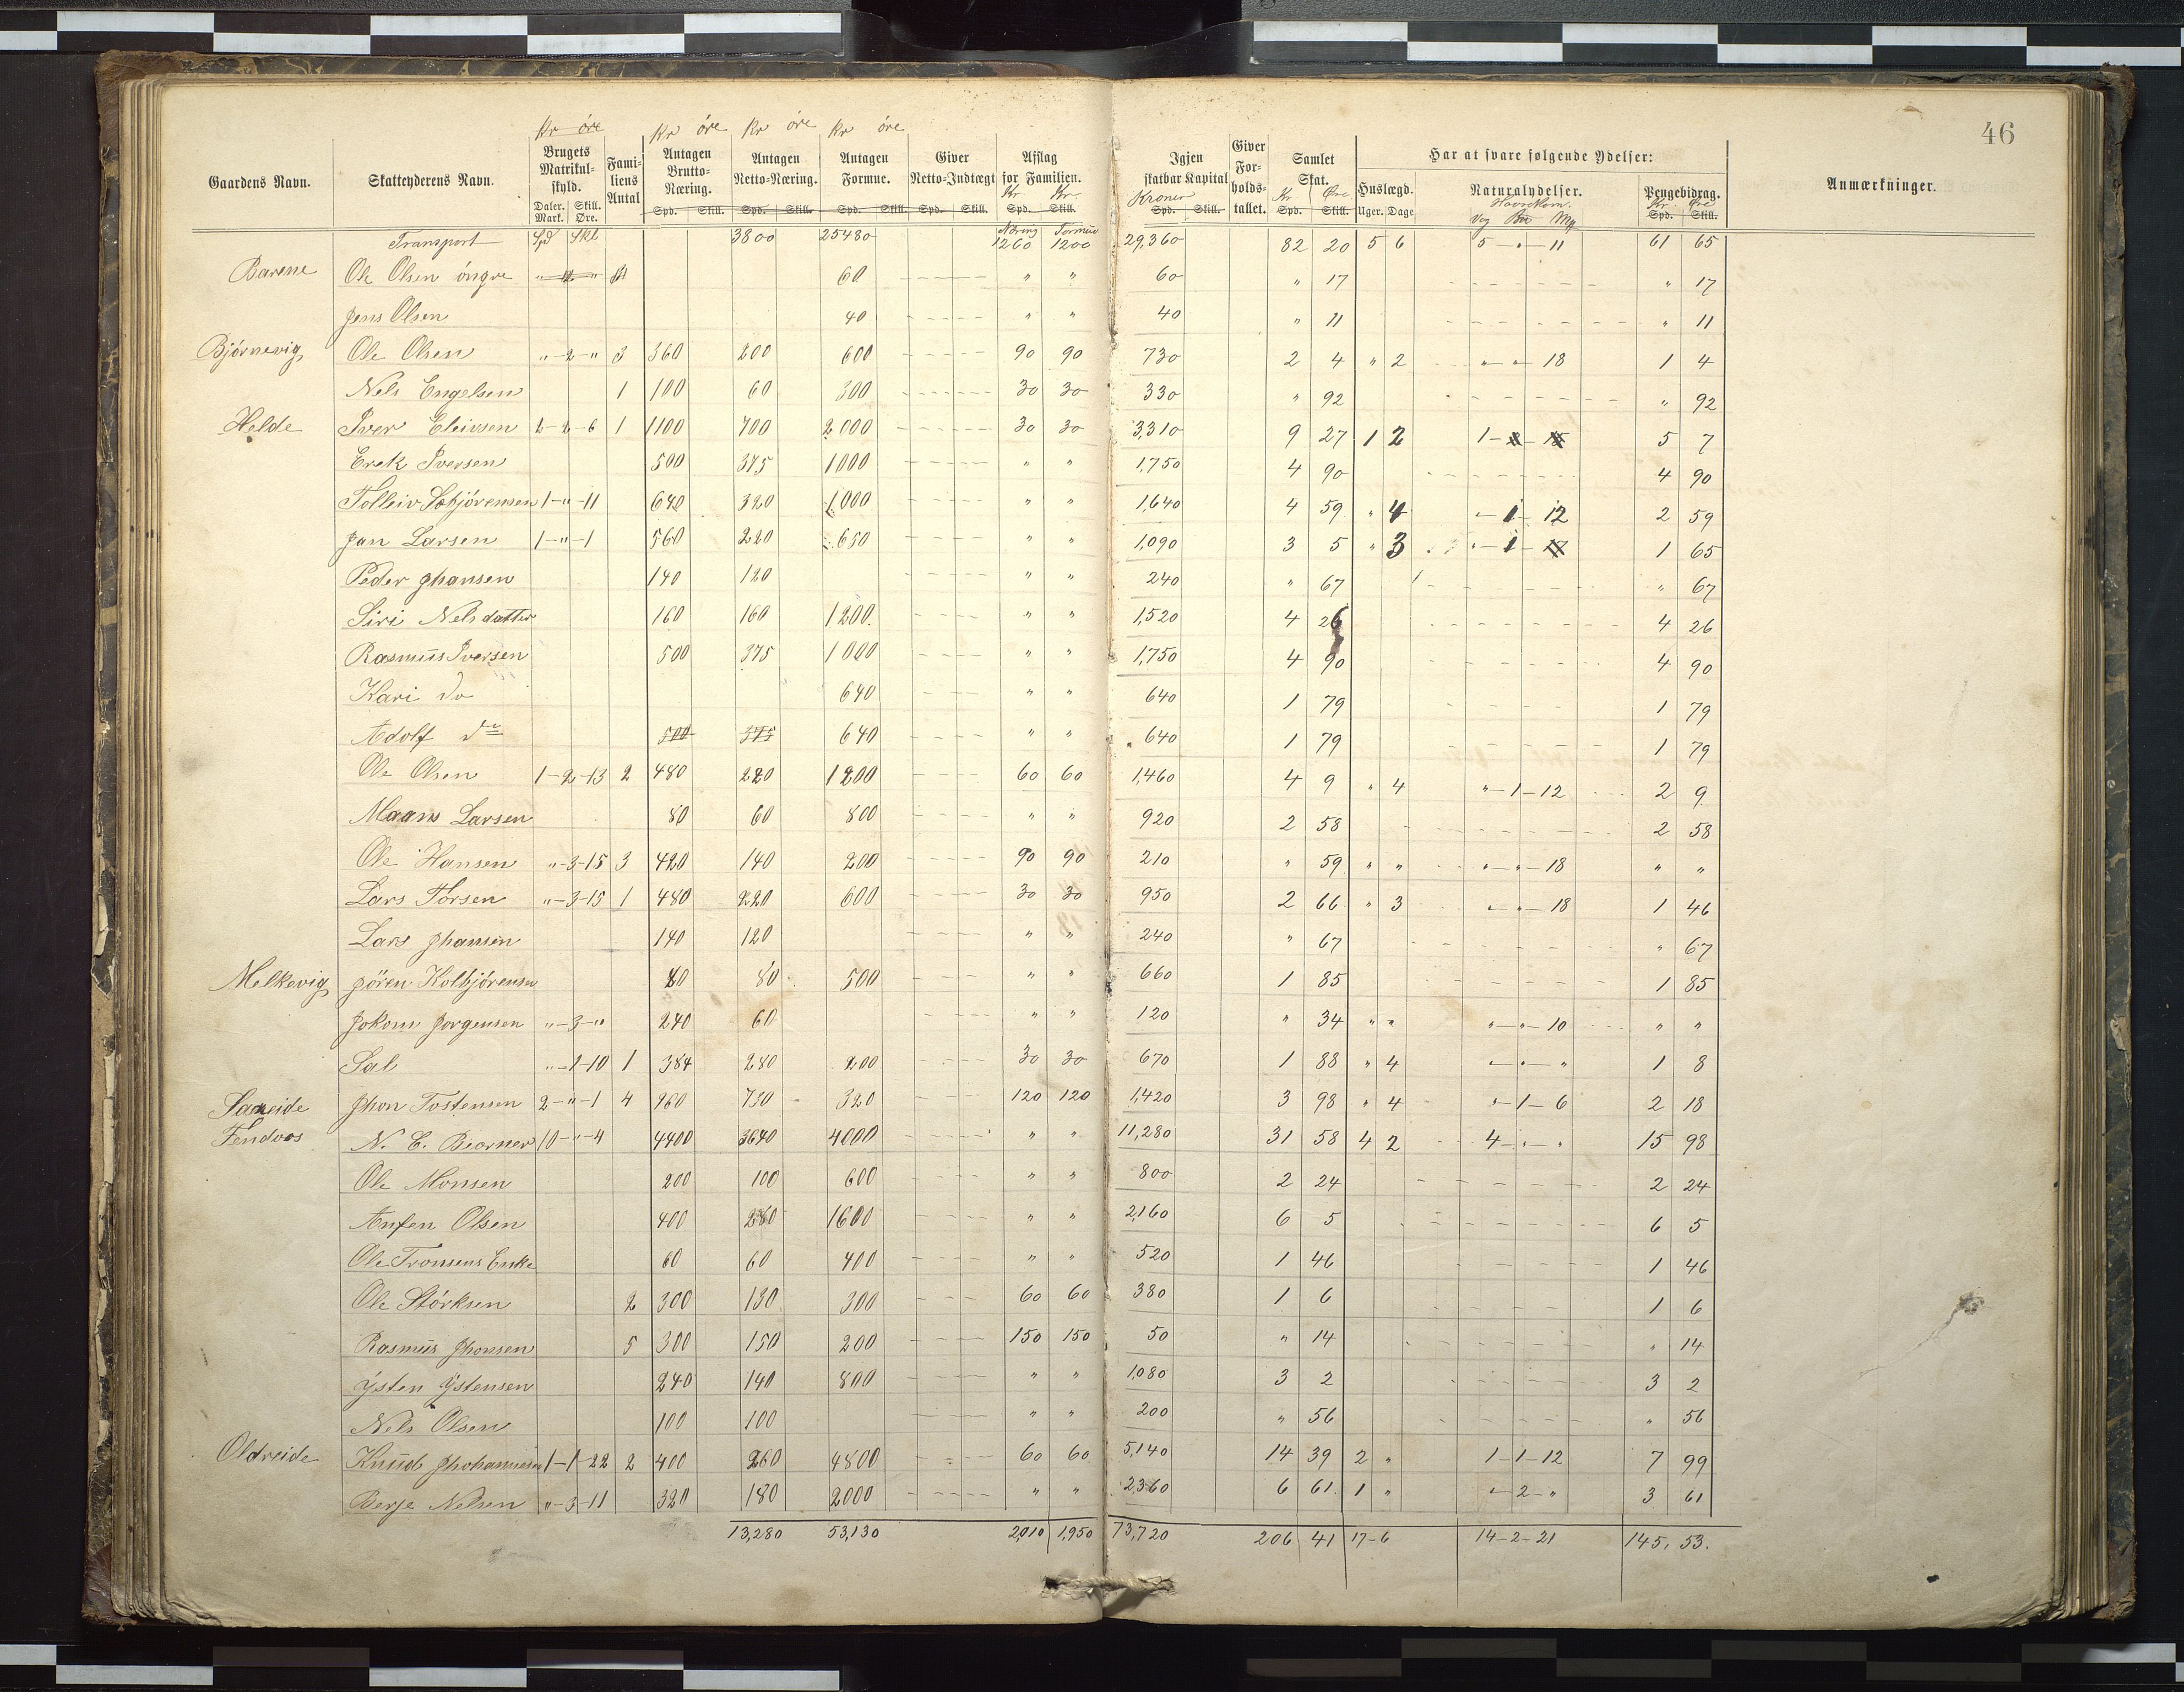 46
Kr øre Kr øre Kr øre Kr øre
Gaardens Navn. Skatteyderens Navn. Brugets Matrikulskyld. Daler. Mark. Skill. Øre. Familiens Antal Antagen Brutto-Næring. Spd. Skill. Antagen Netto-Næring. Spd. Skill. Antagen Formue. Spd. Skill. Giver Netto-Indtægt Spd. Skill. Afslag for Familien. Kr Kr. Spd. Skill. Igjen skatbar Kapital Kroner Spd. Skill. Giver Forholdstallet. Samlet Skat. Kr Øre Spd. Skill. Har at svare følgende Ydelser: Huslægd. Uger. Dage Naturalydelser. Havrekorn. Vog Bre Mg Pengebidrag. Kr. Øre Spd. Skill. Anmærkninger.
Transport Spd Skl 3800 25480 Næring 1260 Formue 1200 29,360 82 20 5 6 5 - " - 11 61 65
Barene Ole Olsen óngre " 2 " 60 " " 60 " 17 " 17
Jens Olsen 40 " " 40 " 11 " 11
Bjórnevig Ole Olsen " - 2 - " 3 360 200 600 90 90 730 2 4 " 2 " - " - 18 1 4
Nels Engelsen 1 100 60 300 30 30 330 " 92 " 92
Helde Iver Eleivsen 2 - 2 - 6 1 1100 700 2000 30 30 3,310 9 27 1 2 1 - 5 7
Erek Iversen 500 375 1000 " " 1,750 4 90 4 90
Tolleiv Sbjórensen 1 - " - 11 640 320 1000 " " 1,640 4 59 " 4 " - 1 - 12 2 59
Jan Larsen 1 - " - 1 560 220 650 " " 1,090 3 5 " 3 " - 1 - 1 65
Peder Jhansen 140 120 " " 240 " 67 " 67
Siri Nelsdatter 160 160 1200. " " 1,520 4 26 4 26
Rasmus Iversen 500 375 1000 " " 1,750 4 90 4 90
Kari do 640 " " 640 1 79 1 79
Adolf do 500 375 640 " " 640 1 79 1 79
Ole Olsen 1 - 2 - 13 2 480 220 1200 60 60 1,460 4 9 " 4 " - 1 - 12 2 9
Maans Larsen 80 60 800 " " 920 2 58 2 58
Ole Hansen " - 3 - 15 3 420 140 200 90 90 210 " 59 " " " - " - 18 " "
Lars Torsen " - 3 - 15 1 480 220 600 30 30 950 2 66 " 3 " - " - 18 1 46
Lars Jhansen 140 120 " " 240 " 67 " 67
Melkevig Jóren Kolbjórensen 80 80 500 " " 660 1 85 1 85
Jokom Jorgensen " - 3 - " 240 60 " " 120 " 34 " " " - " - 10 " "
Sal " - 1 - 10 1 384 280 200 30 30 670 1 88 " 4 " - " - " 1 8
Saneide Jhon Tostensen 2 - " - 1 4 960 730 320 120 120 1,420 3 98 " 4 " - 1 - 6 2 18
Tendoos N. E. Biorner 10 - " - 4 4400 3640 4000 " " 11,280 31 58 4 2 4 - " - " 15 98
Ole Monsen 200 100 600 " " 800 2 24 2 24
Anfen Olsen 400 280 1600 " " 2,160 6 5 6 5
Ole Tronsens Enke 60 60 400 " " 520 1 46 1 46
Ole Stórksen 2 300 130 300 60 60 380 1 6 1 6
Rasmus Jhonsen 5 300 150 200 150 150 50 " 14 " 14
Ysten Ystensen 240 140 800 " " 1,080 3 2 3 2
Nels Olsen 100 100 " " 200 " 56 " 56
Oldreide Knud Jhohannesen 1 - 1 - 22 2 400 260 4800 60 60 5,140 14 39 2 " 1 - 1 - 12 7 99
Berje Nelsen " - 3 - 11 320 180 2000 " " 2360 6 61 1 " " - 2 - " 3 61
13,280 53,130 2,010 1,950 73,720 206 41 17 - 6 14 - 2 - 21 145, 53.